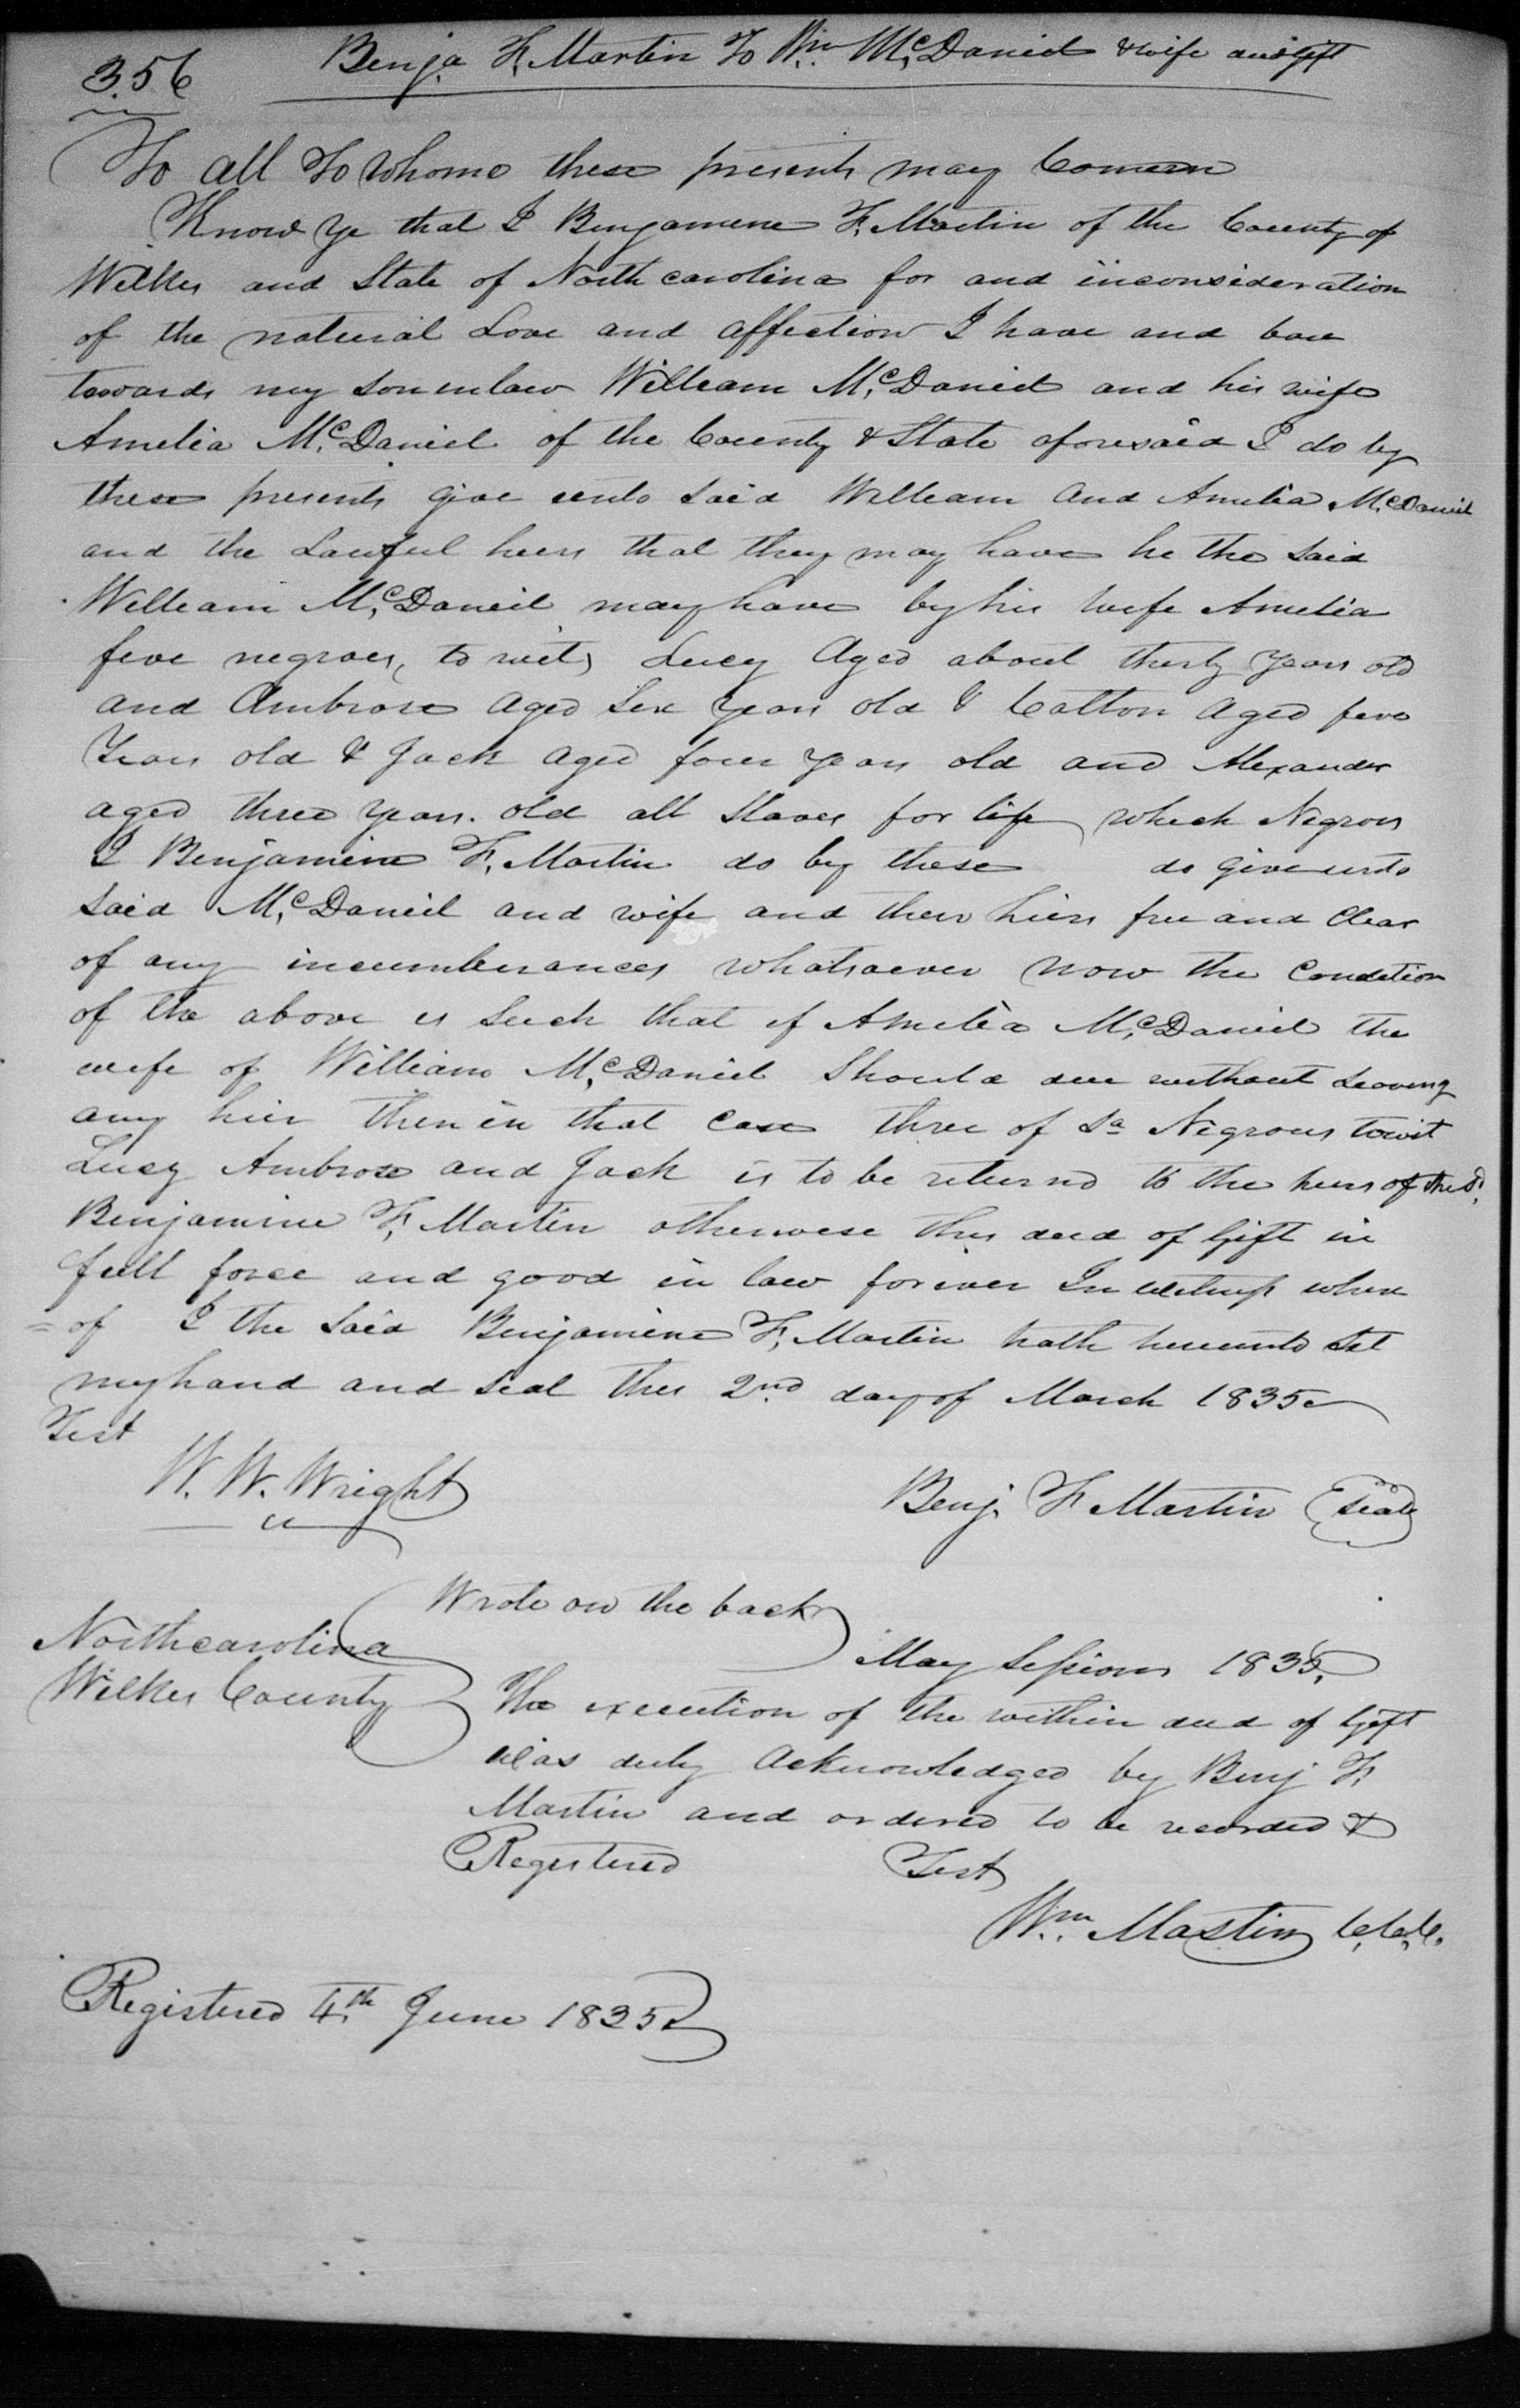 356 Benja F. Martin To Wm McDaniel & wife
To all To Whome these presents may Concern
Know ye that I Benjamine F. Martin of the County of
Wilkes and State of North carolina for and inconsideration
of the natural Love and affection I have and bare
towards my soninlaw William McDaniel and his wife
Amelia McDaniel of the County & State aforesaid I do by
these presents give unto said William and Amelia McDaniel
and the Lawful heirs that they may have he the said
William McDaniel may have by his wife Amelia
five negroes, to wit, Lucy Aged about thirty years old
and Ambrose aged six years old & Calton aged five
Years old & Jack aged four years old and Alexander
aged three years old all slaves for life which Negroes
I Benjamine F. Martin do by these do give unto
said McDaniel and wife and their hiers free and clear
of any incumberances whatsoever now the condition
of the above is such that if Amelia McDaniel the
wife of William McDaniel should die without leaving
any hier then in that case three of sd Negroes towit
Lucy Ambrose and Jack is to be returnd to the heirs of the sd
Benjamine F. Martin otherwise this deed of Gift in
full force and good in law forever In witness where
=of I the said Benjamine F. Martin hath hereunto set
my hand and seal this 2nd day of March 1835
Test
W. W. Wright
Benj. F Martin (seal)
Wrote on the back
Northcarolina
Wilkes County
May Sessions 1835
The execution of the within deed of Gift
was duly acknowledged by Benj F.
Martin and ordered to be recorded &
Registered Test
Wm. Mastin
Registered 4th June 1835